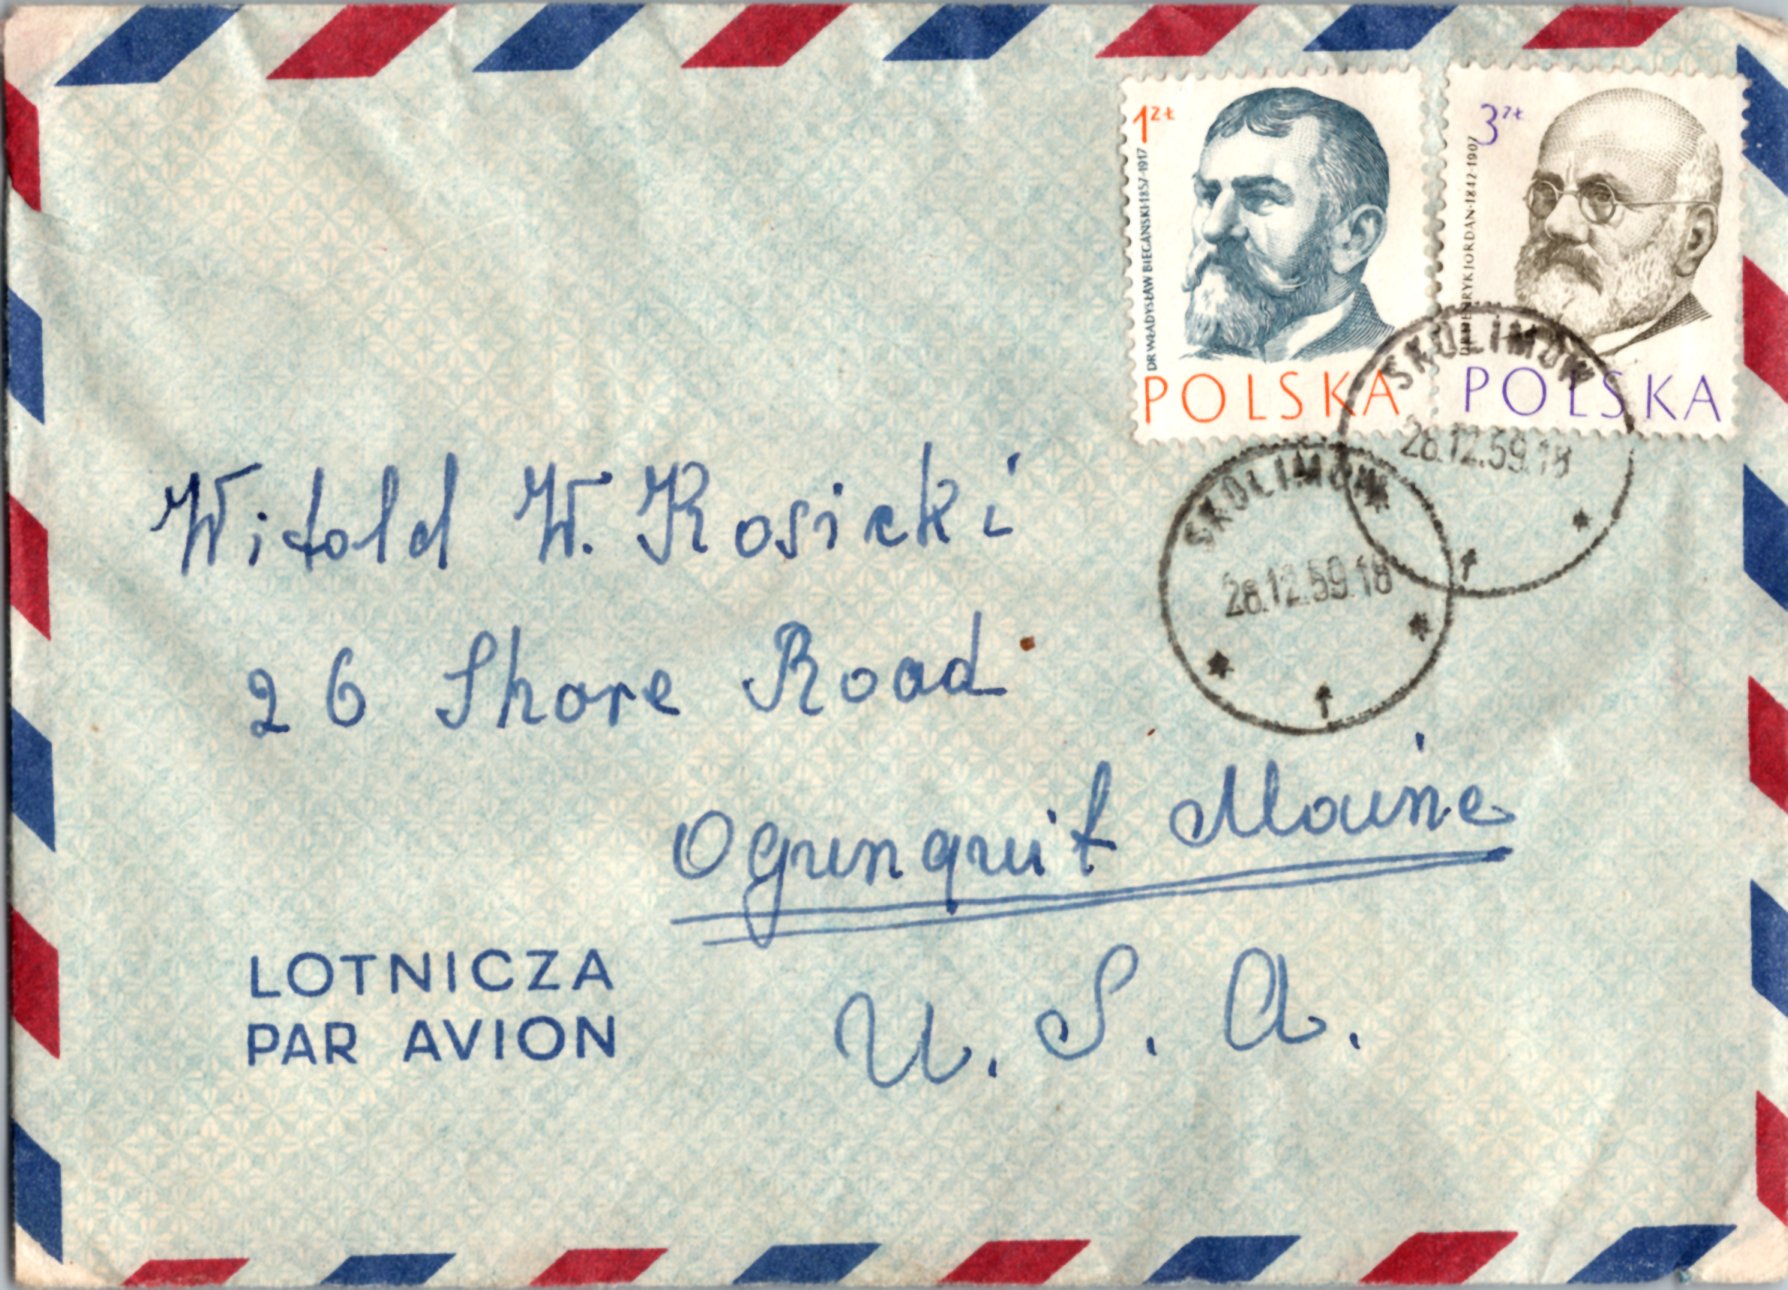 1 ZŁ
DR WŁADYSŁAW BIEGAŃSKI·1857·1917
POLSKA
3 ZŁ
DR HENRYK JORDAN·1842·1907
POLSKA
SKOLIMÓW
28.12.59.18
SKOLIMÓW
28.12.59.18
Witold W. Rosicki
26 Shore Road
Ogunquit Maine
U. S. A.
LOTNICZA
PAR AVION